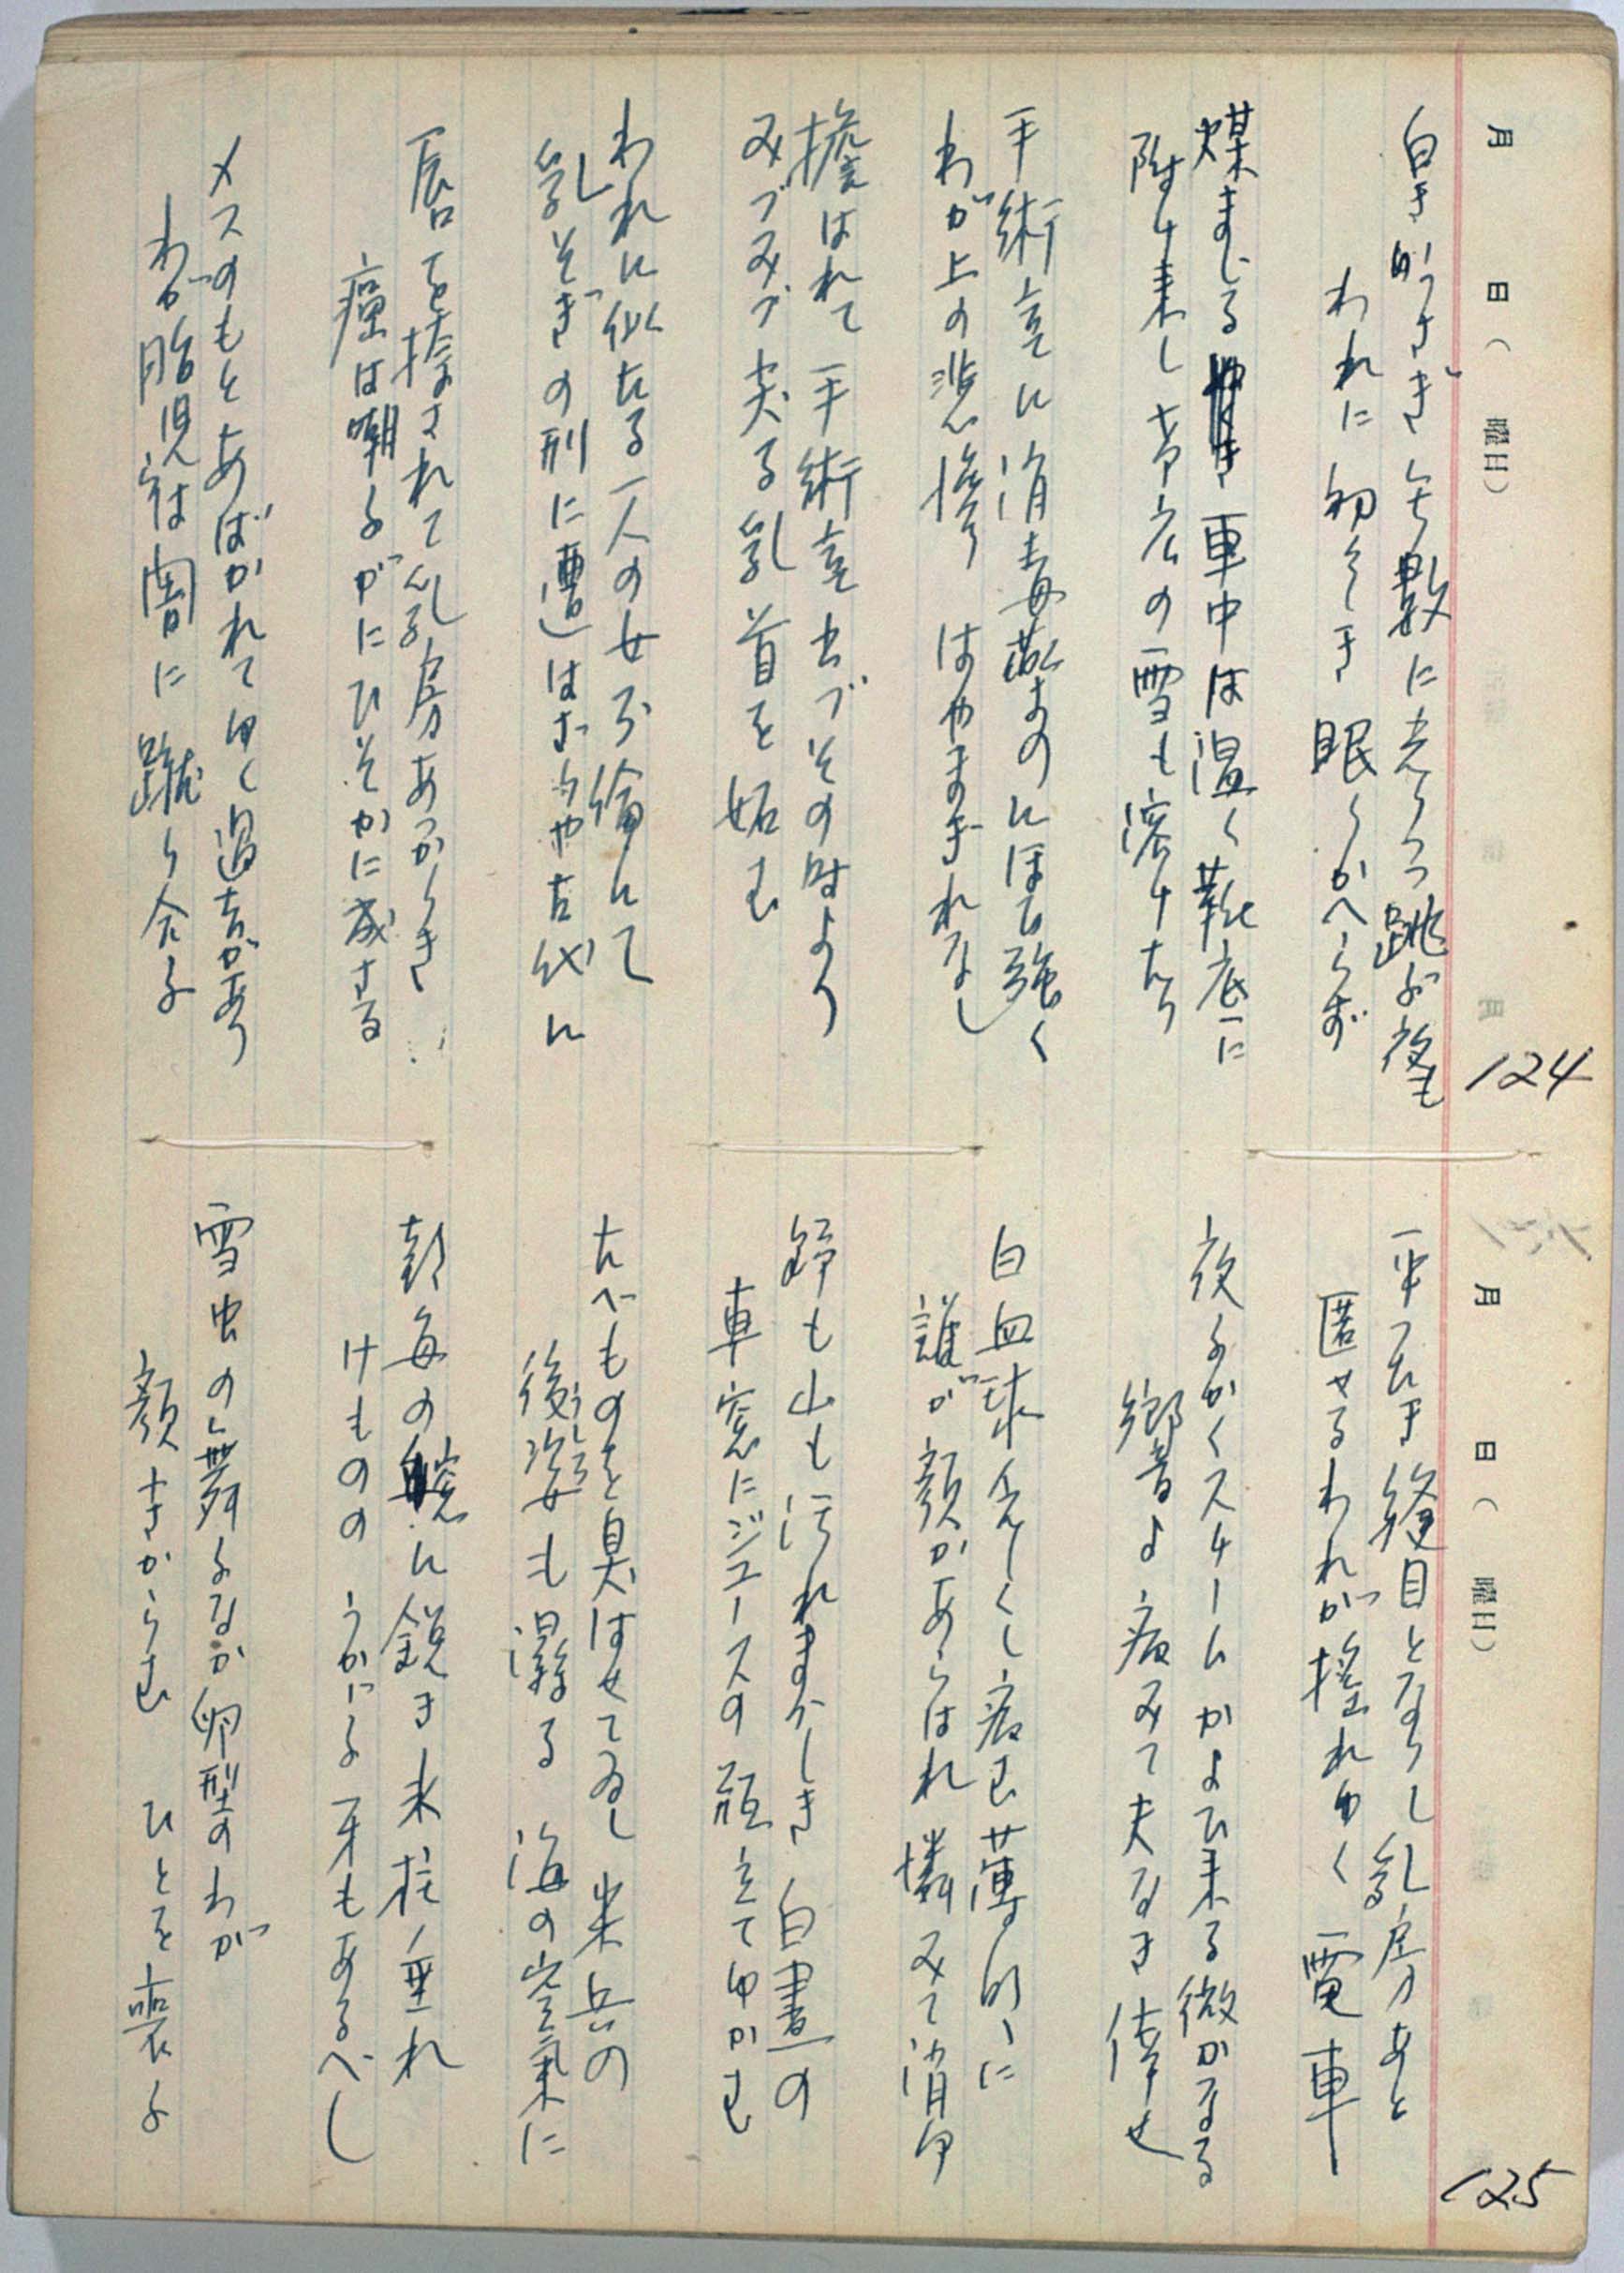 月 日( 曜日)
124
白きうさぎ無数に光りつつ跳ぶ夜も
われに初々しき眠りかへらず
煤まじる 車中は温く靴底に
附け来し帯広の雪も溶けたり
手術室に消毒薬のにほひ強く
わが上の悲惨はやまぎれなし
擔はれて手術室出づその時より
みづみづ尖る乳首を妬む
われに似たる一人の女不倫にて
乳そぎの刑に遭はざりしや古代に
唇を捺されて乳房あつかりき
癌は嘲るがにひそかに成さる
メスのもとあばかれてゆく過去があり
わが胎児らは闇に蹴り合ふ
月 日( 曜日)
125
平つたき縫目となりし乳房あと
匿せるわれが揺れゆく電車
夜ふかくスチームかよひ来る微かなる
響音よ病みて夫なき倖せ
白血球 病む薄明に
誰が顔かあらはれ憐みて消ゆ
錚も山も汚れまぶしき白晝の
車窓にジュースの瓶立てゆかむ
たべものを臭はせてゐし米兵の
後姿も濕る海の空氣に
朝毎の に鋭き氷柱垂れ
けものの うかがふ牙もあるべし
雪虫の舞ふなか卵型のわが
顔さむからむ ひとを喪ふ